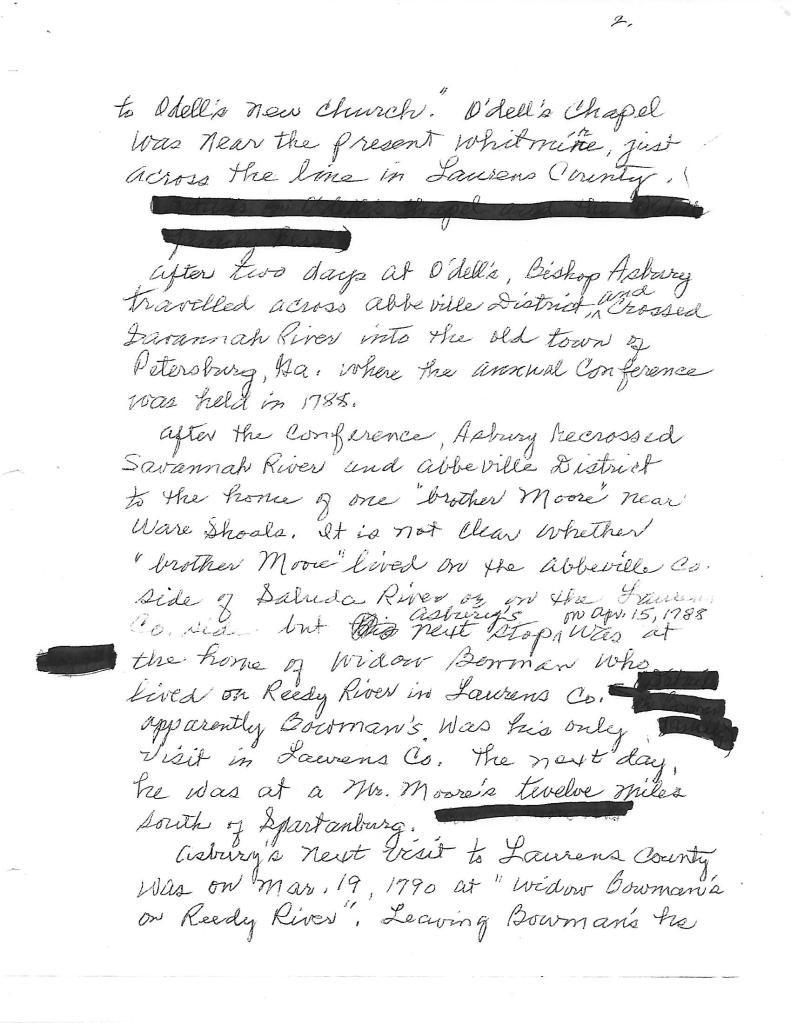 2.
to Odell's new church." O'dell's Chapel
was near the present Whitmire, just
across the line in Laurens County.
After two days at O'dell's, Bishop Asbury
travelled across Abbeville District, and crossed
Savannah River into the old town of
Petersburg, Ga. where the annual Conference
was held in 1788.
After the Conference, Asbury recrossed
Savannah River and Abbeville District
to the home of one "brother Moore" near
Ware Shoals. It is not clear whether
"brother Moore" lived on the Abbeville Co.
side of Saluda River or on the Laurens
Co. side but Asbury's next stop, on Apr. 15, 1788 was at
the home of Widow Bowman who
lived on Reedy River in Laurens Co.
apparently Bowman's was his only
visit in Laurens Co. The next day,
he was at a Mr. Moore's twelve miles
south of Spartanburg.
Asbury's next visit to Laurens County
was on Mar. 19, 1790 at "Widow Bowman's
on Reedy River". Leaving Bowman's he